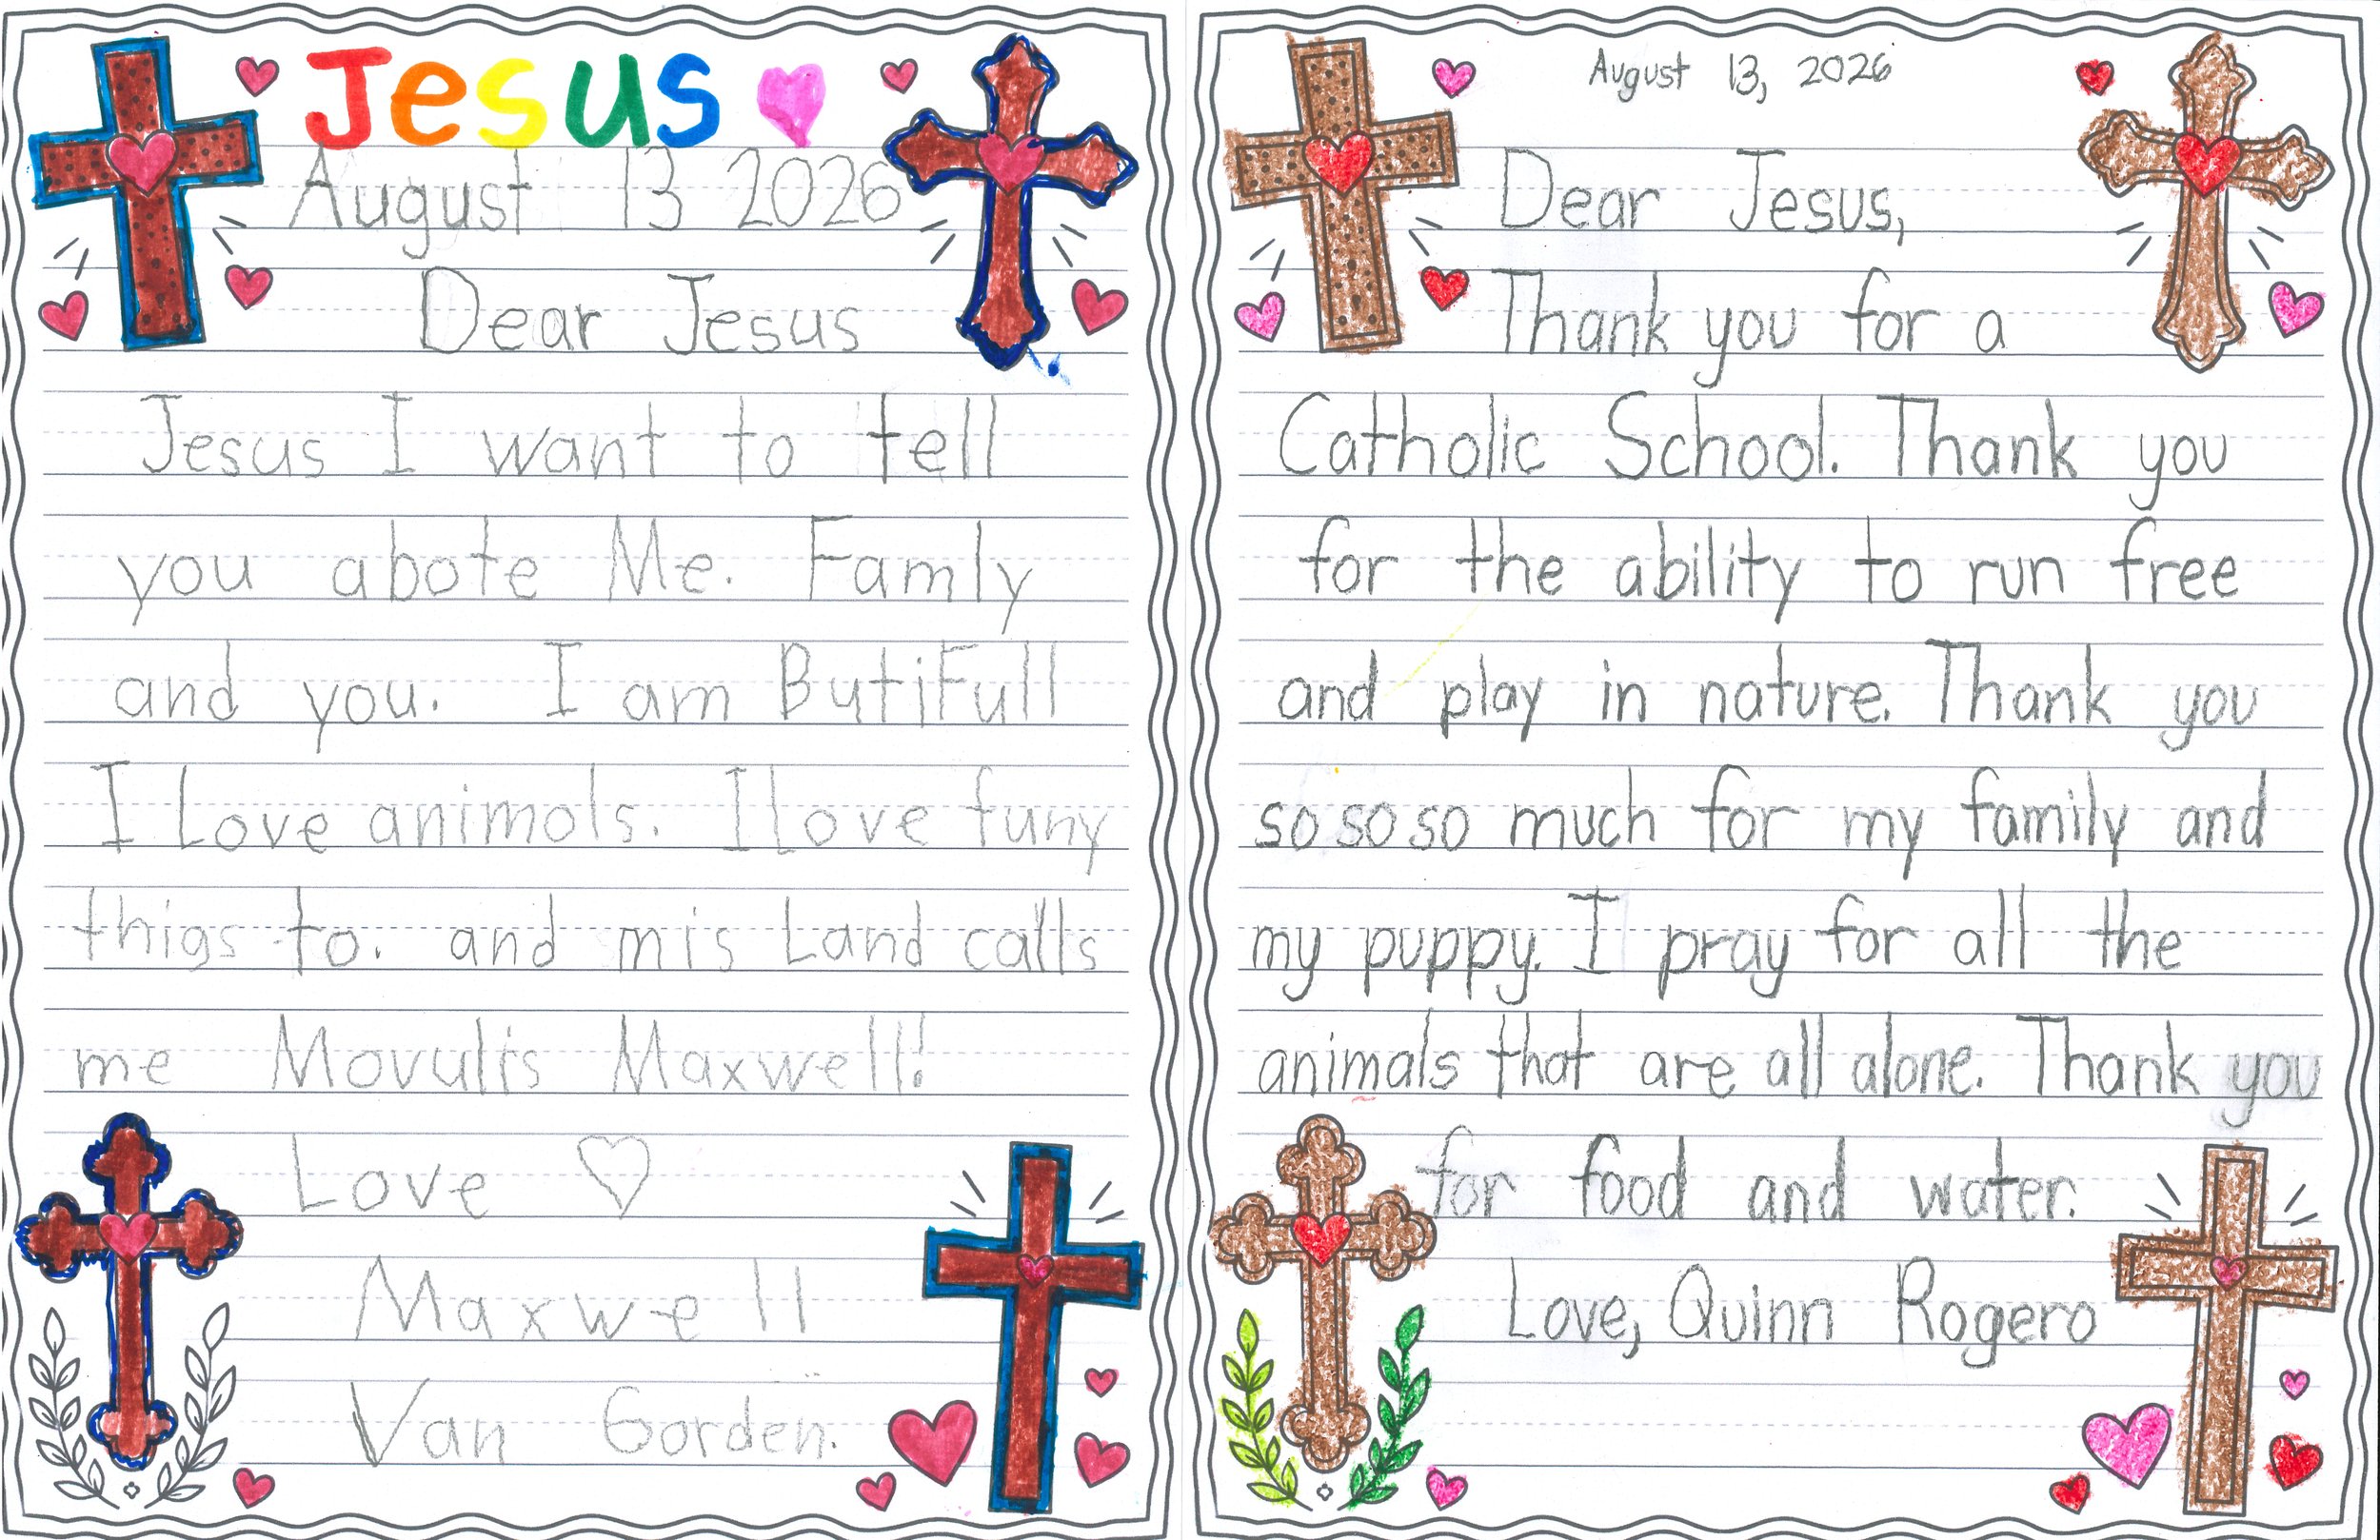 Jesus
August 13 2026
Dear Jesus
Jesus I want to tell
you abote Me. Famly
and you. I am ButiFull
I Love animols. I Love funy
thigs to. and mis Land calls
me Movulis Maxwell!
Love ♡
Maxwell
Van Gorden.
August 13, 2026
Dear Jesus,
Thank you for a
Catholic School. Thank you
for the ability to run free
and play in nature. Thank you
so so so much for my family and
my puppy. I pray for all the
animals that are all alone. Thank you
for food and water.
Love, Quinn Rogero